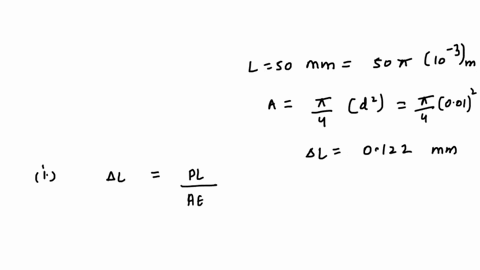 L = 50 mm = 50 π (10⁻³) m
A = π/4 (d²) = π/4 (0.01)²
ΔL = 0.122 mm
(i.) ΔL = PL/AE